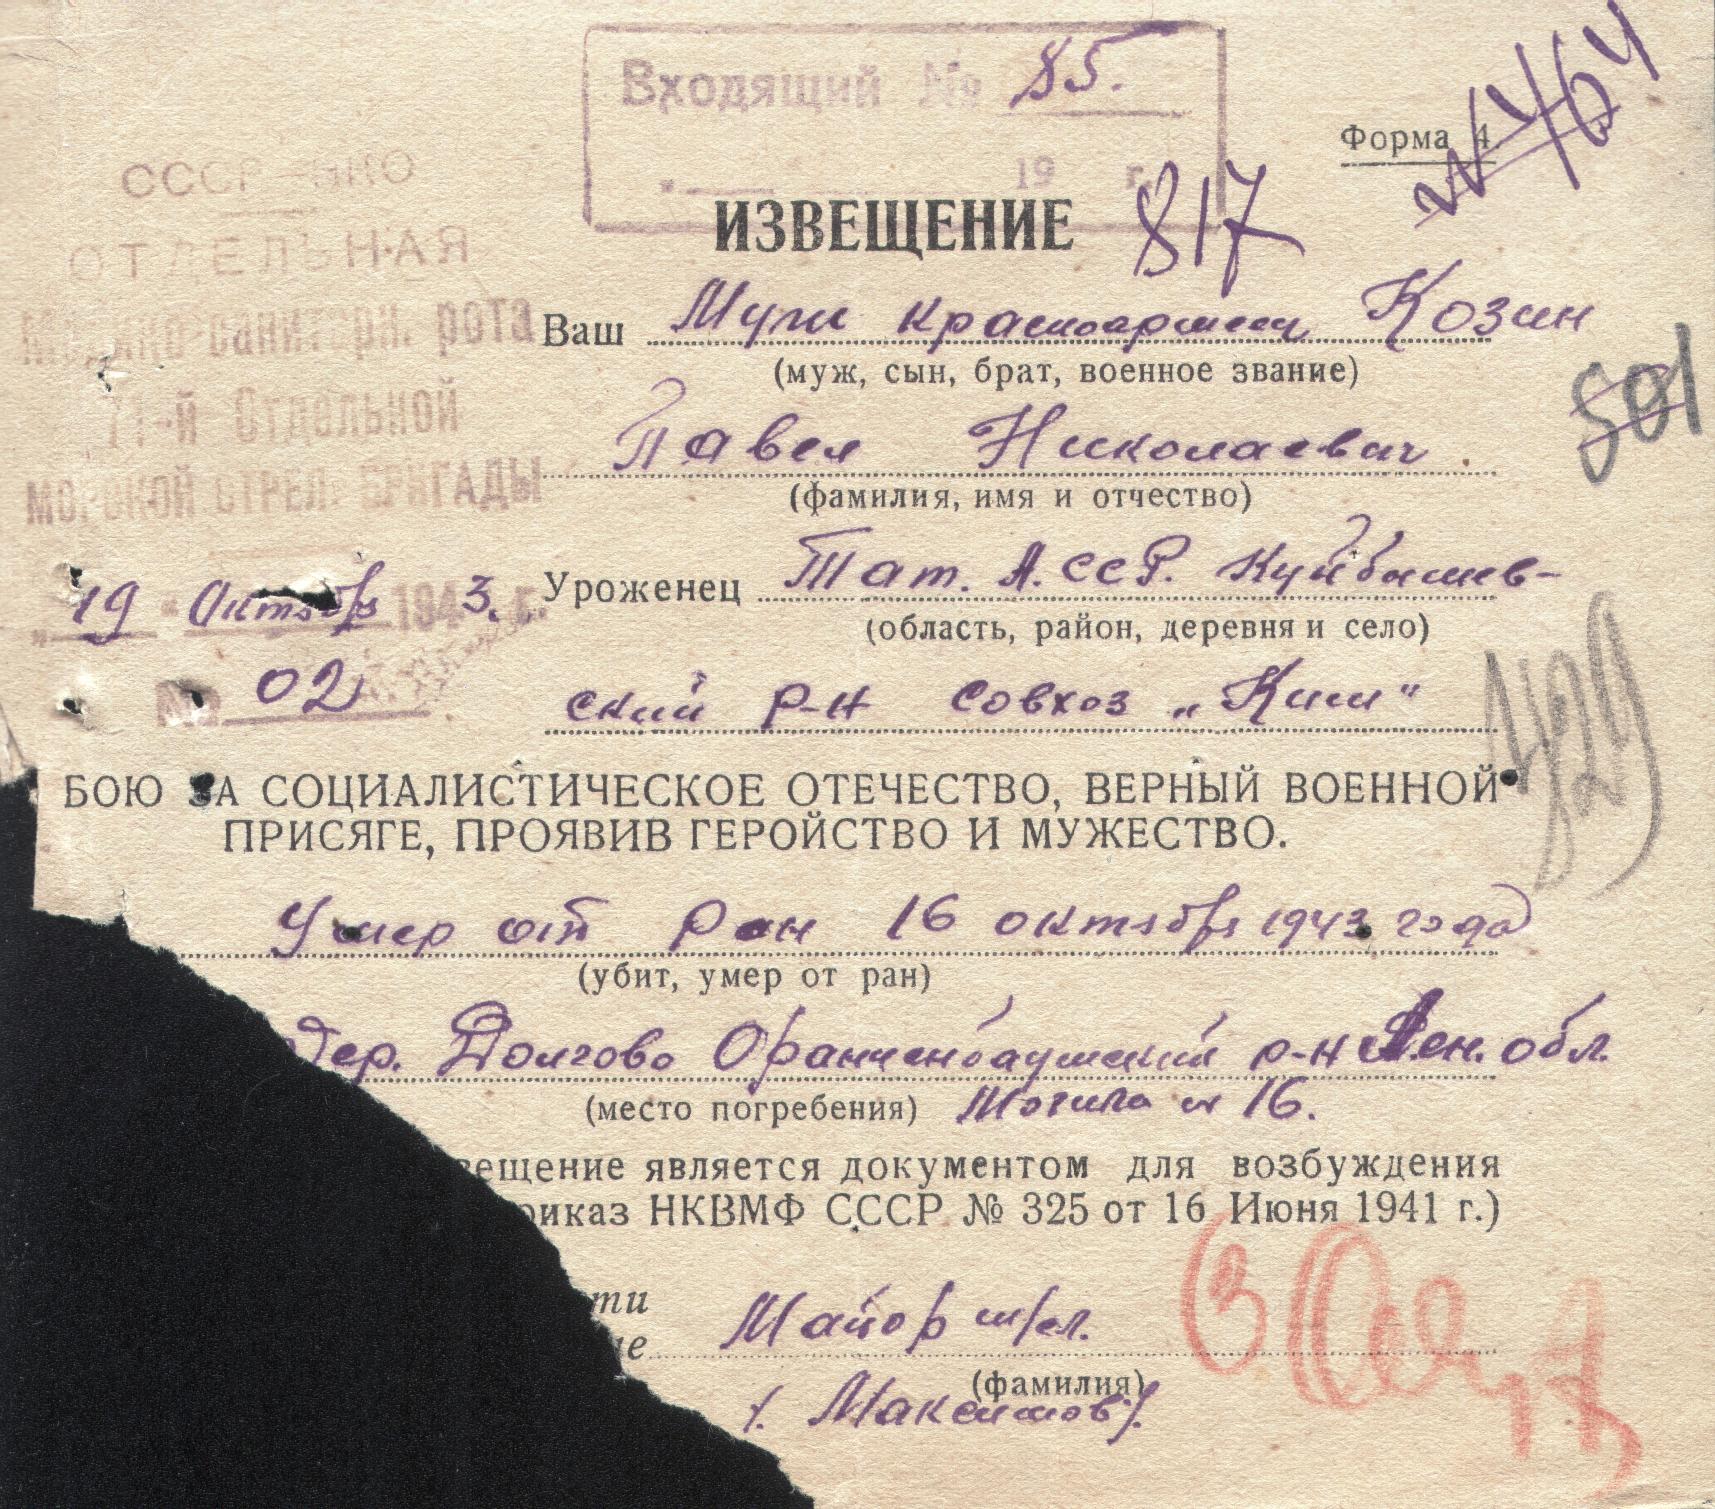 Входящий № 85.
19 г.
Форма 4.
№ 464
СССР—НКО
ОТДЕЛЬНАЯ
Медико-санитарн. рота
71-й Отдельной
МОРСКОЙ СТРЕЛ. БРИГАДЫ
„19" Октября 1943. г.
№ 02
ИЗВЕЩЕНИЕ
817
Ваш Муж красноармеец Козин
(муж, сын, брат, военное звание)
801
Павел Николаевич.
(фамилия, имя и отчество)
Уроженец Тат. А.ССР. Куйбышев-
(область, район, деревня и село)
ский р-н совхоз „Ким"
БОЮ ЗА СОЦИАЛИСТИЧЕСКОЕ ОТЕЧЕСТВО, ВЕРНЫЙ ВОЕННОЙ
ПРИСЯГЕ, ПРОЯВИВ ГЕРОЙСТВО И МУЖЕСТВО.
Умер от ран 16 октября 1943 года
(убит, умер от ран)
дер. Долгово Ораниенбаумский р-н Лен. обл.
(место погребения) Могила № 16.
вещение является документом для возбуждения
риказ НКВМФ СССР № 325 от 16 Июня 1941 г.)
ти
ие Майор м/сл.
(фамилия)
/. Максимов /.